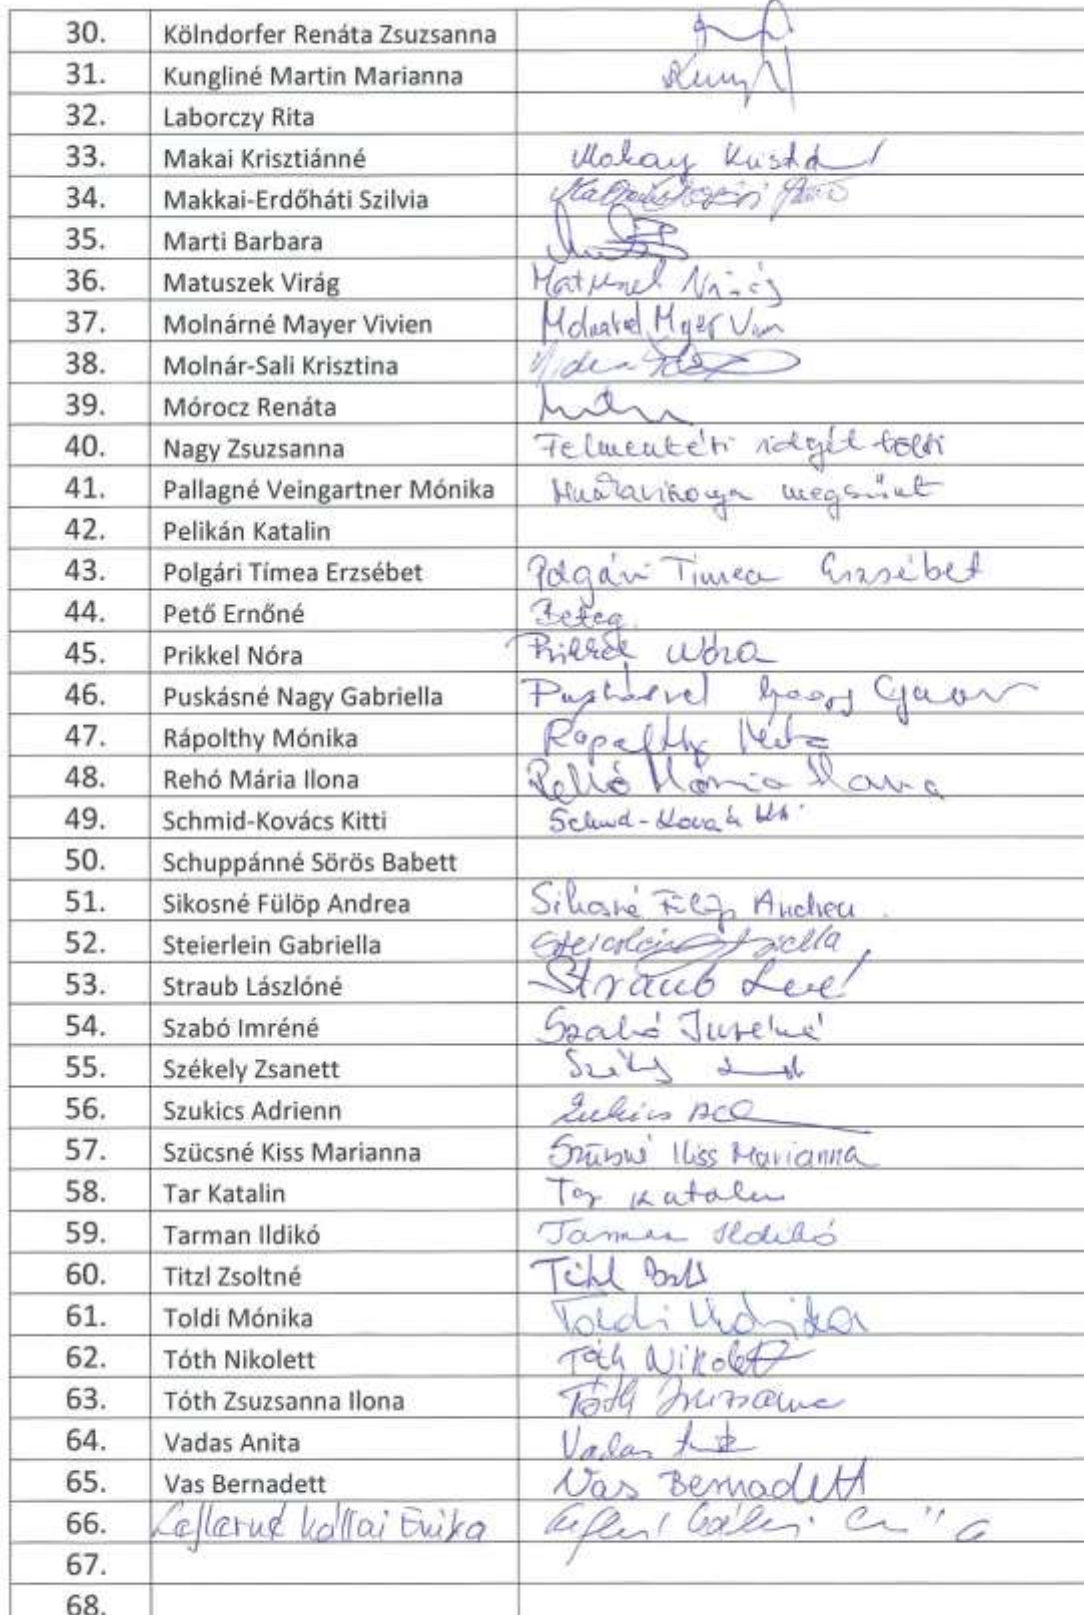 30. Kölndorfer Renáta Zsuzsanna
31. Kungliné Martin Marianna
32. Laborczy Rita
33. Makai Krisztiánné
34. Makkai-Erdőháti Szilvia
35. Marti Barbara
36. Matuszek Virág
37. Molnárné Mayer Vivien
38. Molnár-Sali Krisztina
39. Mórocz Renáta
40. Nagy Zsuzsanna Felmentési idejét tölti
41. Pallagné Veingartner Mónika Munkaviszonya megszűnt
42. Pelikán Katalin
43. Polgári Tímea Erzsébet Polgári Tímea Erzsébet
44. Pető Ernőné Beteg.
45. Prikkel Nóra Prikkel Nóra
46. Puskásné Nagy Gabriella
47. Rápolthy Mónika
48. Rehó Mária Ilona Rehó Mária Ilona
49. Schmid-Kovács Kitti
50. Schuppánné Sörös Babett
51. Sikosné Fülöp Andrea Sikosné Fülöp Andrea
52. Steierlein Gabriella
53. Straub Lászlóné Straub
54. Szabó Imréné Szabó Imréné
55. Székely Zsanett
56. Szukics Adrienn
57. Szücsné Kiss Marianna Szücsné Kiss Marianna
58. Tar Katalin Tar Katalin
59. Tarman Ildikó Tarman Ildikó
60. Titzl Zsoltné
61. Toldi Mónika Toldi Mónika
62. Tóth Nikolett Tóth Nikolett
63. Tóth Zsuzsanna Ilona Tóth Zsuzsanna
64. Vadas Anita Vadas
65. Vas Bernadett Vas Bernadett
66. Erika
67.
68.